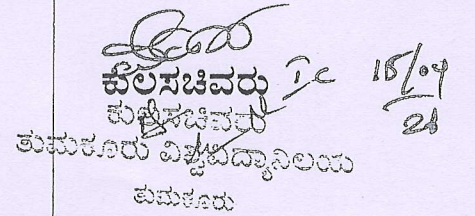 ಕುಲಸಚಿವರು I/C 15/04
ಕುಲಸಚಿವರು 21
ತುಮಕೂರು ವಿಶ್ವವಿದ್ಯಾನಿಲಯ
ತುಮಕೂರು